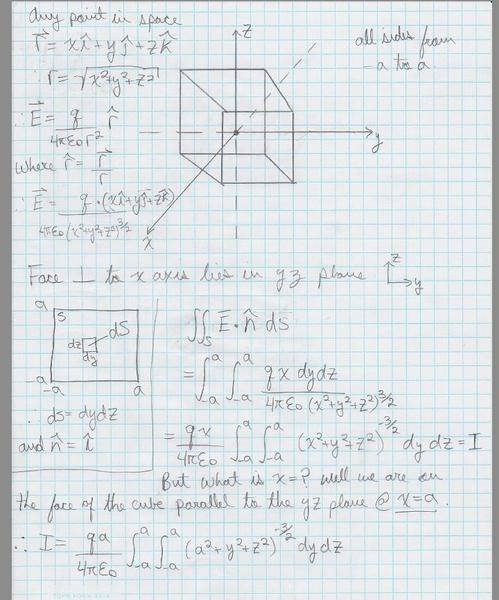 Any point in space
r⃗ = xî+yĵ+zk̂
∴ r=√(x²+y²+z²)
∴ E⃗ = q/(4πε₀r²) r̂
where r̂ = r⃗/r
∴ E⃗ = q·(xî+yĵ+zk̂)/(4πε₀(x²+y²+z²)^(3/2))
z
y
x
all sides from
-a to a.
Face ⊥ to x axis lies in yz plane
z
y
a
S
dS
dz
dy
a
-a
a
∴ dS=dydz
and n̂ = î
∬_S E⃗·n̂ dS
= ∫_-a^a ∫_-a^a qx dydz/(4πε₀ (x²+y²+z²)^(3/2))
= qx/(4πε₀) ∫_-a^a ∫_-a^a (x²+y²+z²)^(-3/2) dy dz = I
But what is x=? well we are on
the face of the cube parallel to the yz plane @ x=a.
∴ I = qa/(4πε₀) ∫_-a^a ∫_-a^a (a²+y²+z²)^(-3/2) dydz